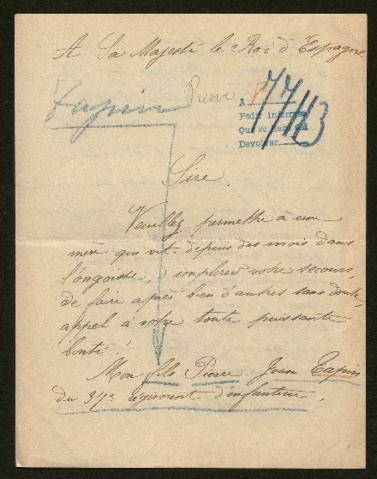 A Sa Majesté le Roi d'Espagne
Tapin Pierre
A
Pedir informes
Que se
Devolver
Sire,
Veuillez permettre à une
mère qui vit depuis des mois dans
l'angoisse, d'implorer votre secours,
de faire après bien d'autres sans doute,
appel à votre toute puissante
bonté!
Mon fils Pierre Jean Tapin
du 37e régiment d'infanterie,